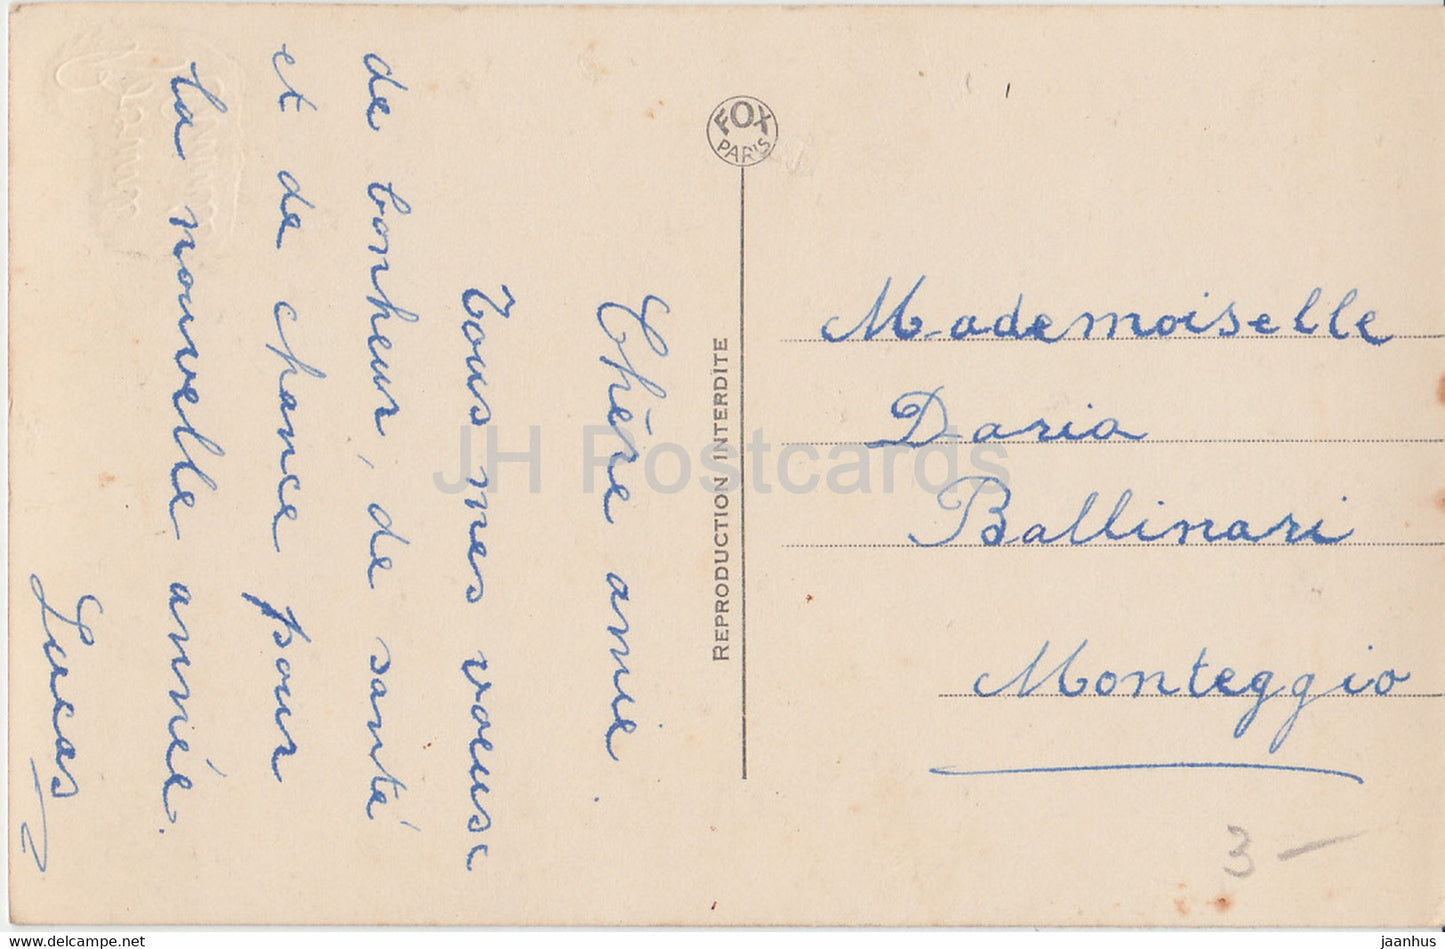 Chère amie.
Tous mes voeux
de bonheur, de santé
et de chance pour
la nouvelle année.
Lucas
FOX
PARIS
REPRODUCTION INTERDITE
Mademoiselle
Daria
Ballinari
Monteggio
3 –
JH Postcards
jaanhus.com